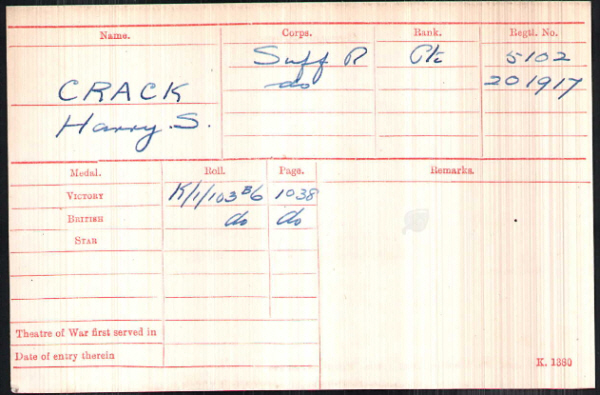 Name. Corps. Rank. Regtl. No.
Suff R Pte 5102
CRACK do 201917
Harry. S.
Medal. Roll. Page. Remarks.
VICTORY K/1/103 B6 1038
BRITISH do do
STAR
Theatre of War first served in
Date of entry therein
K. 1380